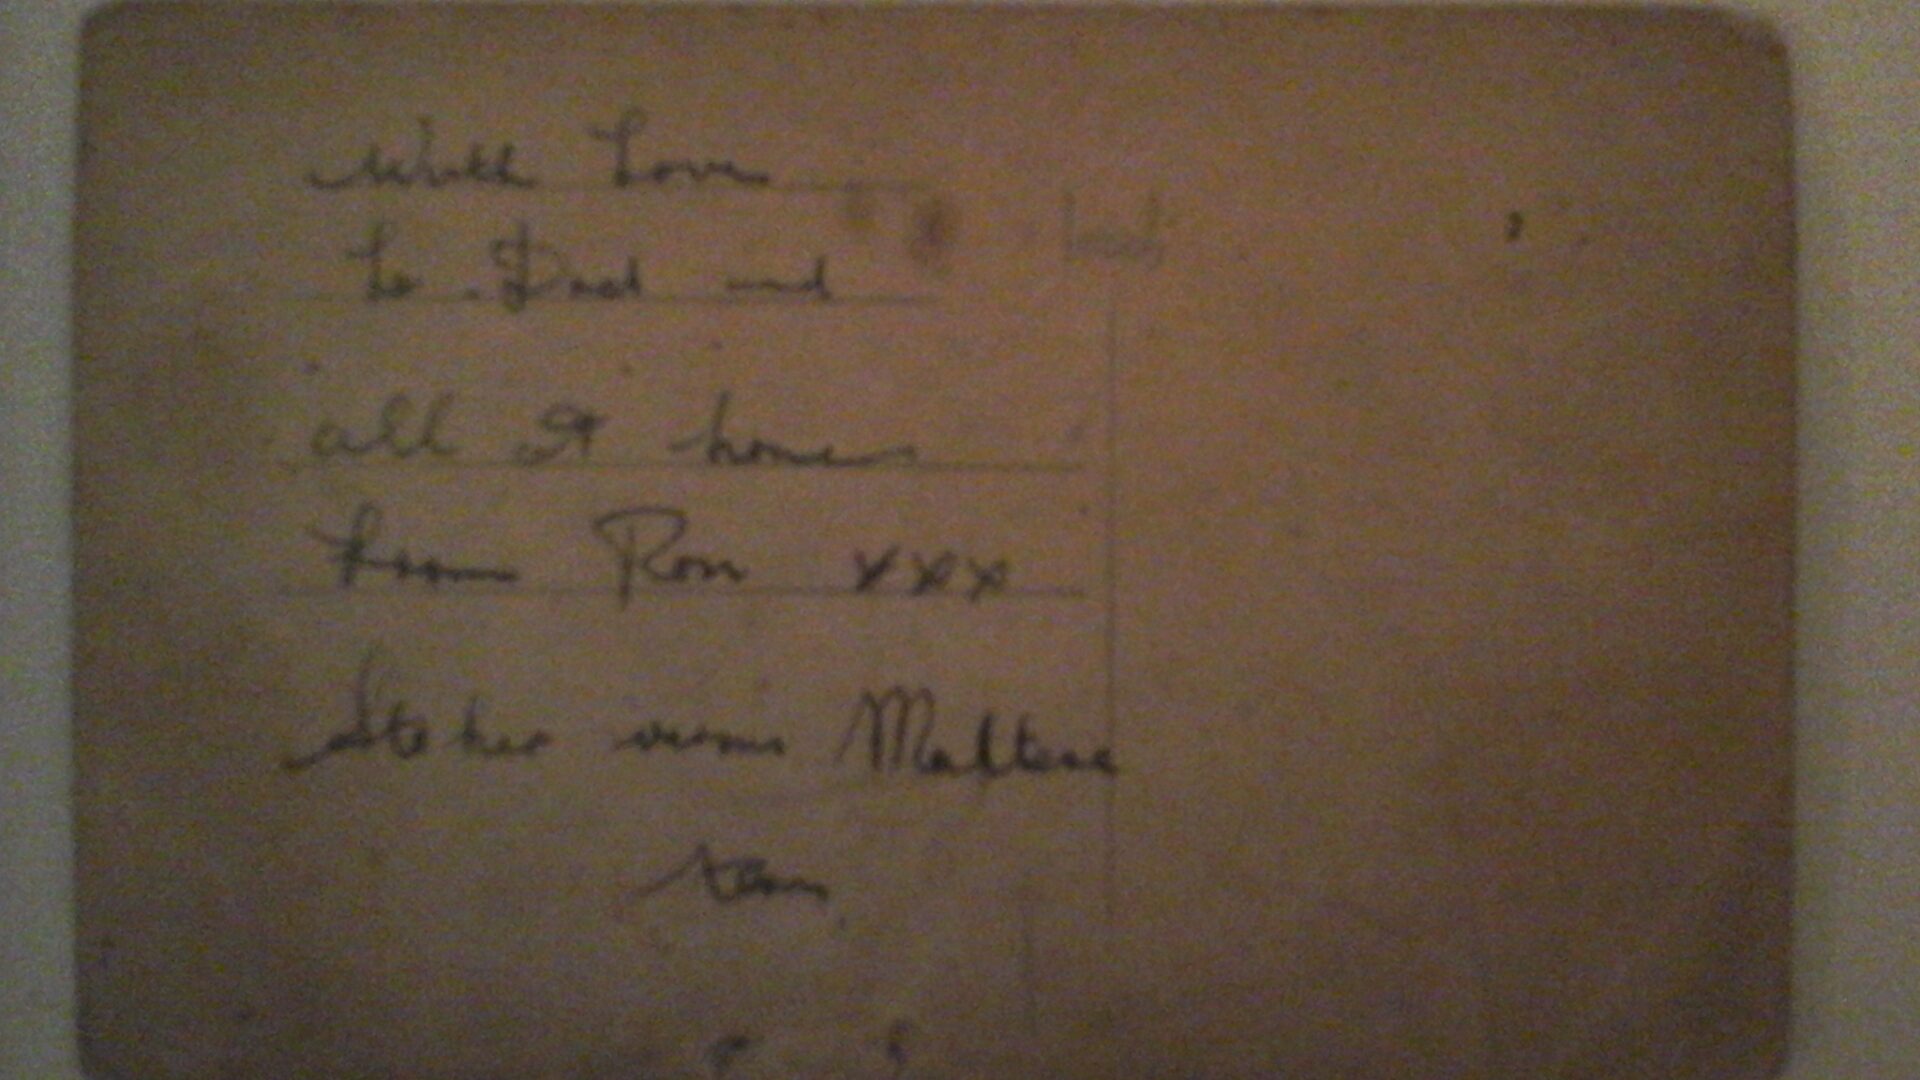 With Love
to Dad and
all at home
from Ron xxx
Stoker versus Maltese
team